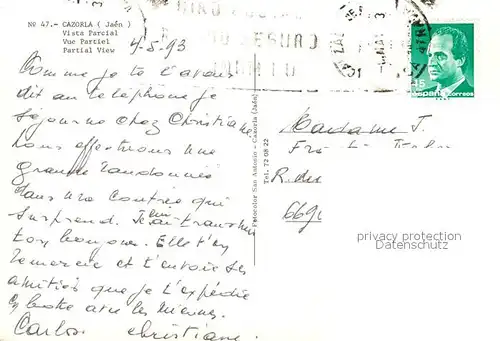 Nº 47.- CAZORLA ( Jaén )
Vista Parcial
Vue Partiel
Partial View
4-5-93
Comme je te l'avais
dit au telephone je
séjourne chez Christiane.
Nous effectuons une
grande randonnée
dans une contrée qui
surprend. Je lui transmets
ton bonjour. Elle t'en
remercie et t'envoie ses
amitiés que je t'expédie
en boite avec les miennes.
Carlos Christiane.
GIRO
SEGURO
España correos
Fotocolor San Antonio - Cazorla (Jaén)
Tel. 72 08 22
Madame J.
R. du
privacy protection
Datenschutz